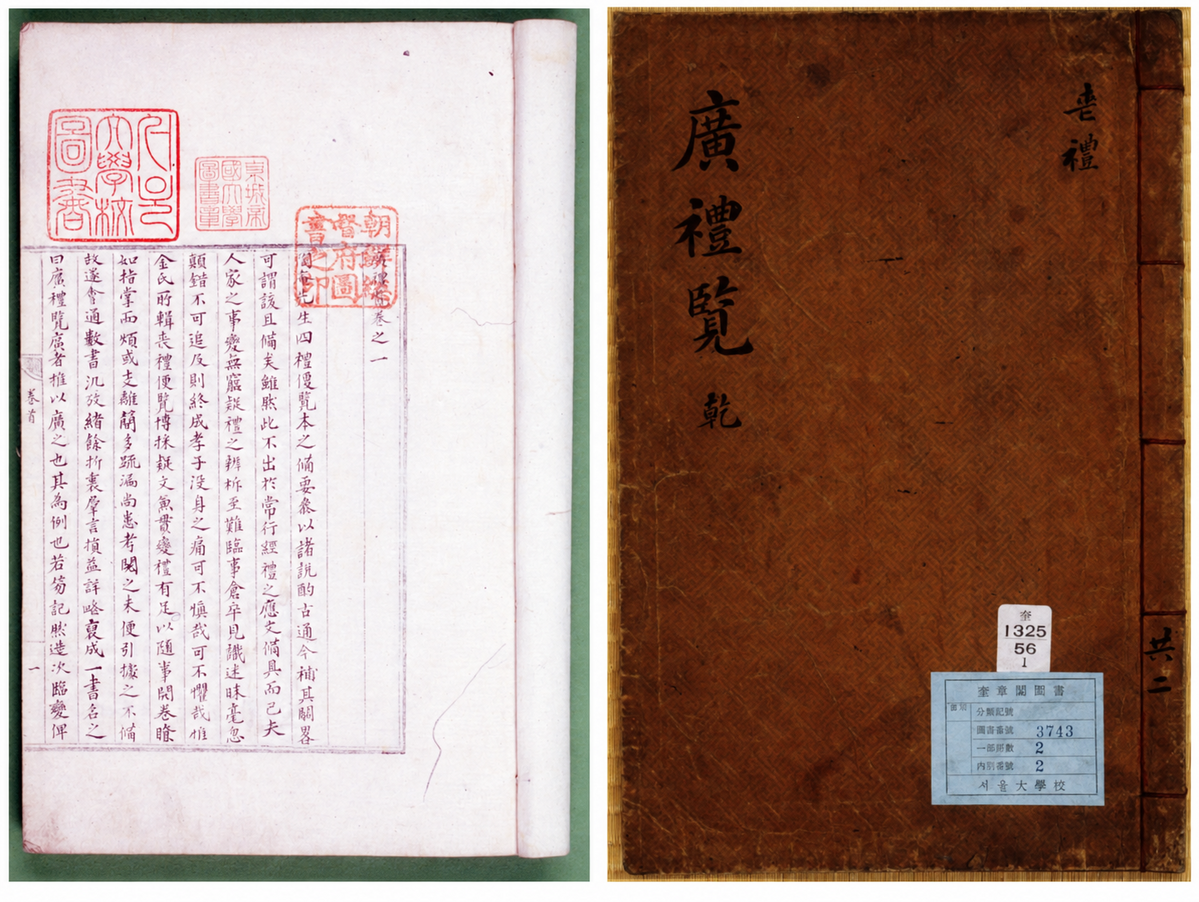 서울大學校圖書
京城帝國大學圖書章
朝鮮總督府圖書之印
廣禮覽卷之一
陶菴先生四禮便覽本之備要叅以諸說酌古通今補其闕畧
可謂該且備矣雖然此不出於常行經禮之應文備具而已夫
人家之事變無窮疑禮之辨析至難臨事倉卒見識迷昧毫忽
顛錯不可追及則終成孝子没身之痛可不愼哉可不懼哉惟
金氏所輯喪禮便覽博採疑文兼貫變禮有足以隨事開卷瞭
如指掌而煩或支離簡多踈漏尚患考閱之未便引據之不備
故遂會通數書汎攷緖餘折衷羣言損益詳略裒成一書名之
曰廣禮覽廣者推以廣之也其為例也若笏記然造次臨變俾
卷首
一
喪禮
廣禮覽 乾
共二
奎
1325
56
1
奎章閣圖書
分類記號
圖書番號 3743
一部冊數 2
內別番號 2
서울大學校